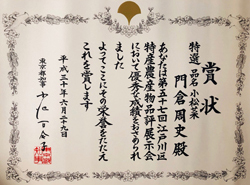 賞状
特選 品名 小松菜
門倉周史殿
あなたは第五十七回江戸川区
特産農産物品評展示会
において優秀な成績をおさめられ
ました
よってここにその栄誉をたたえ
これを賞します
平成三十年六月二十九日
東京都知事 小池百合子